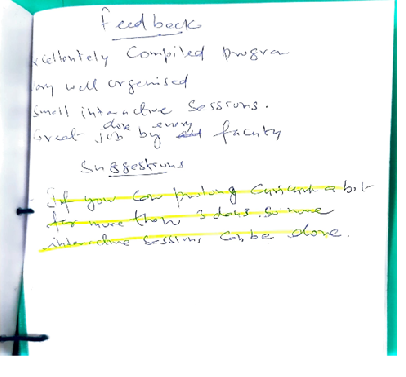 Feedback
Excellently Compiled program
Very well organised
Small interactive sessions.
Great job done by every faculty
Suggestions
If you can prolong curriculum a bit
for more than 3 days. so more
interactive sessions can be done.